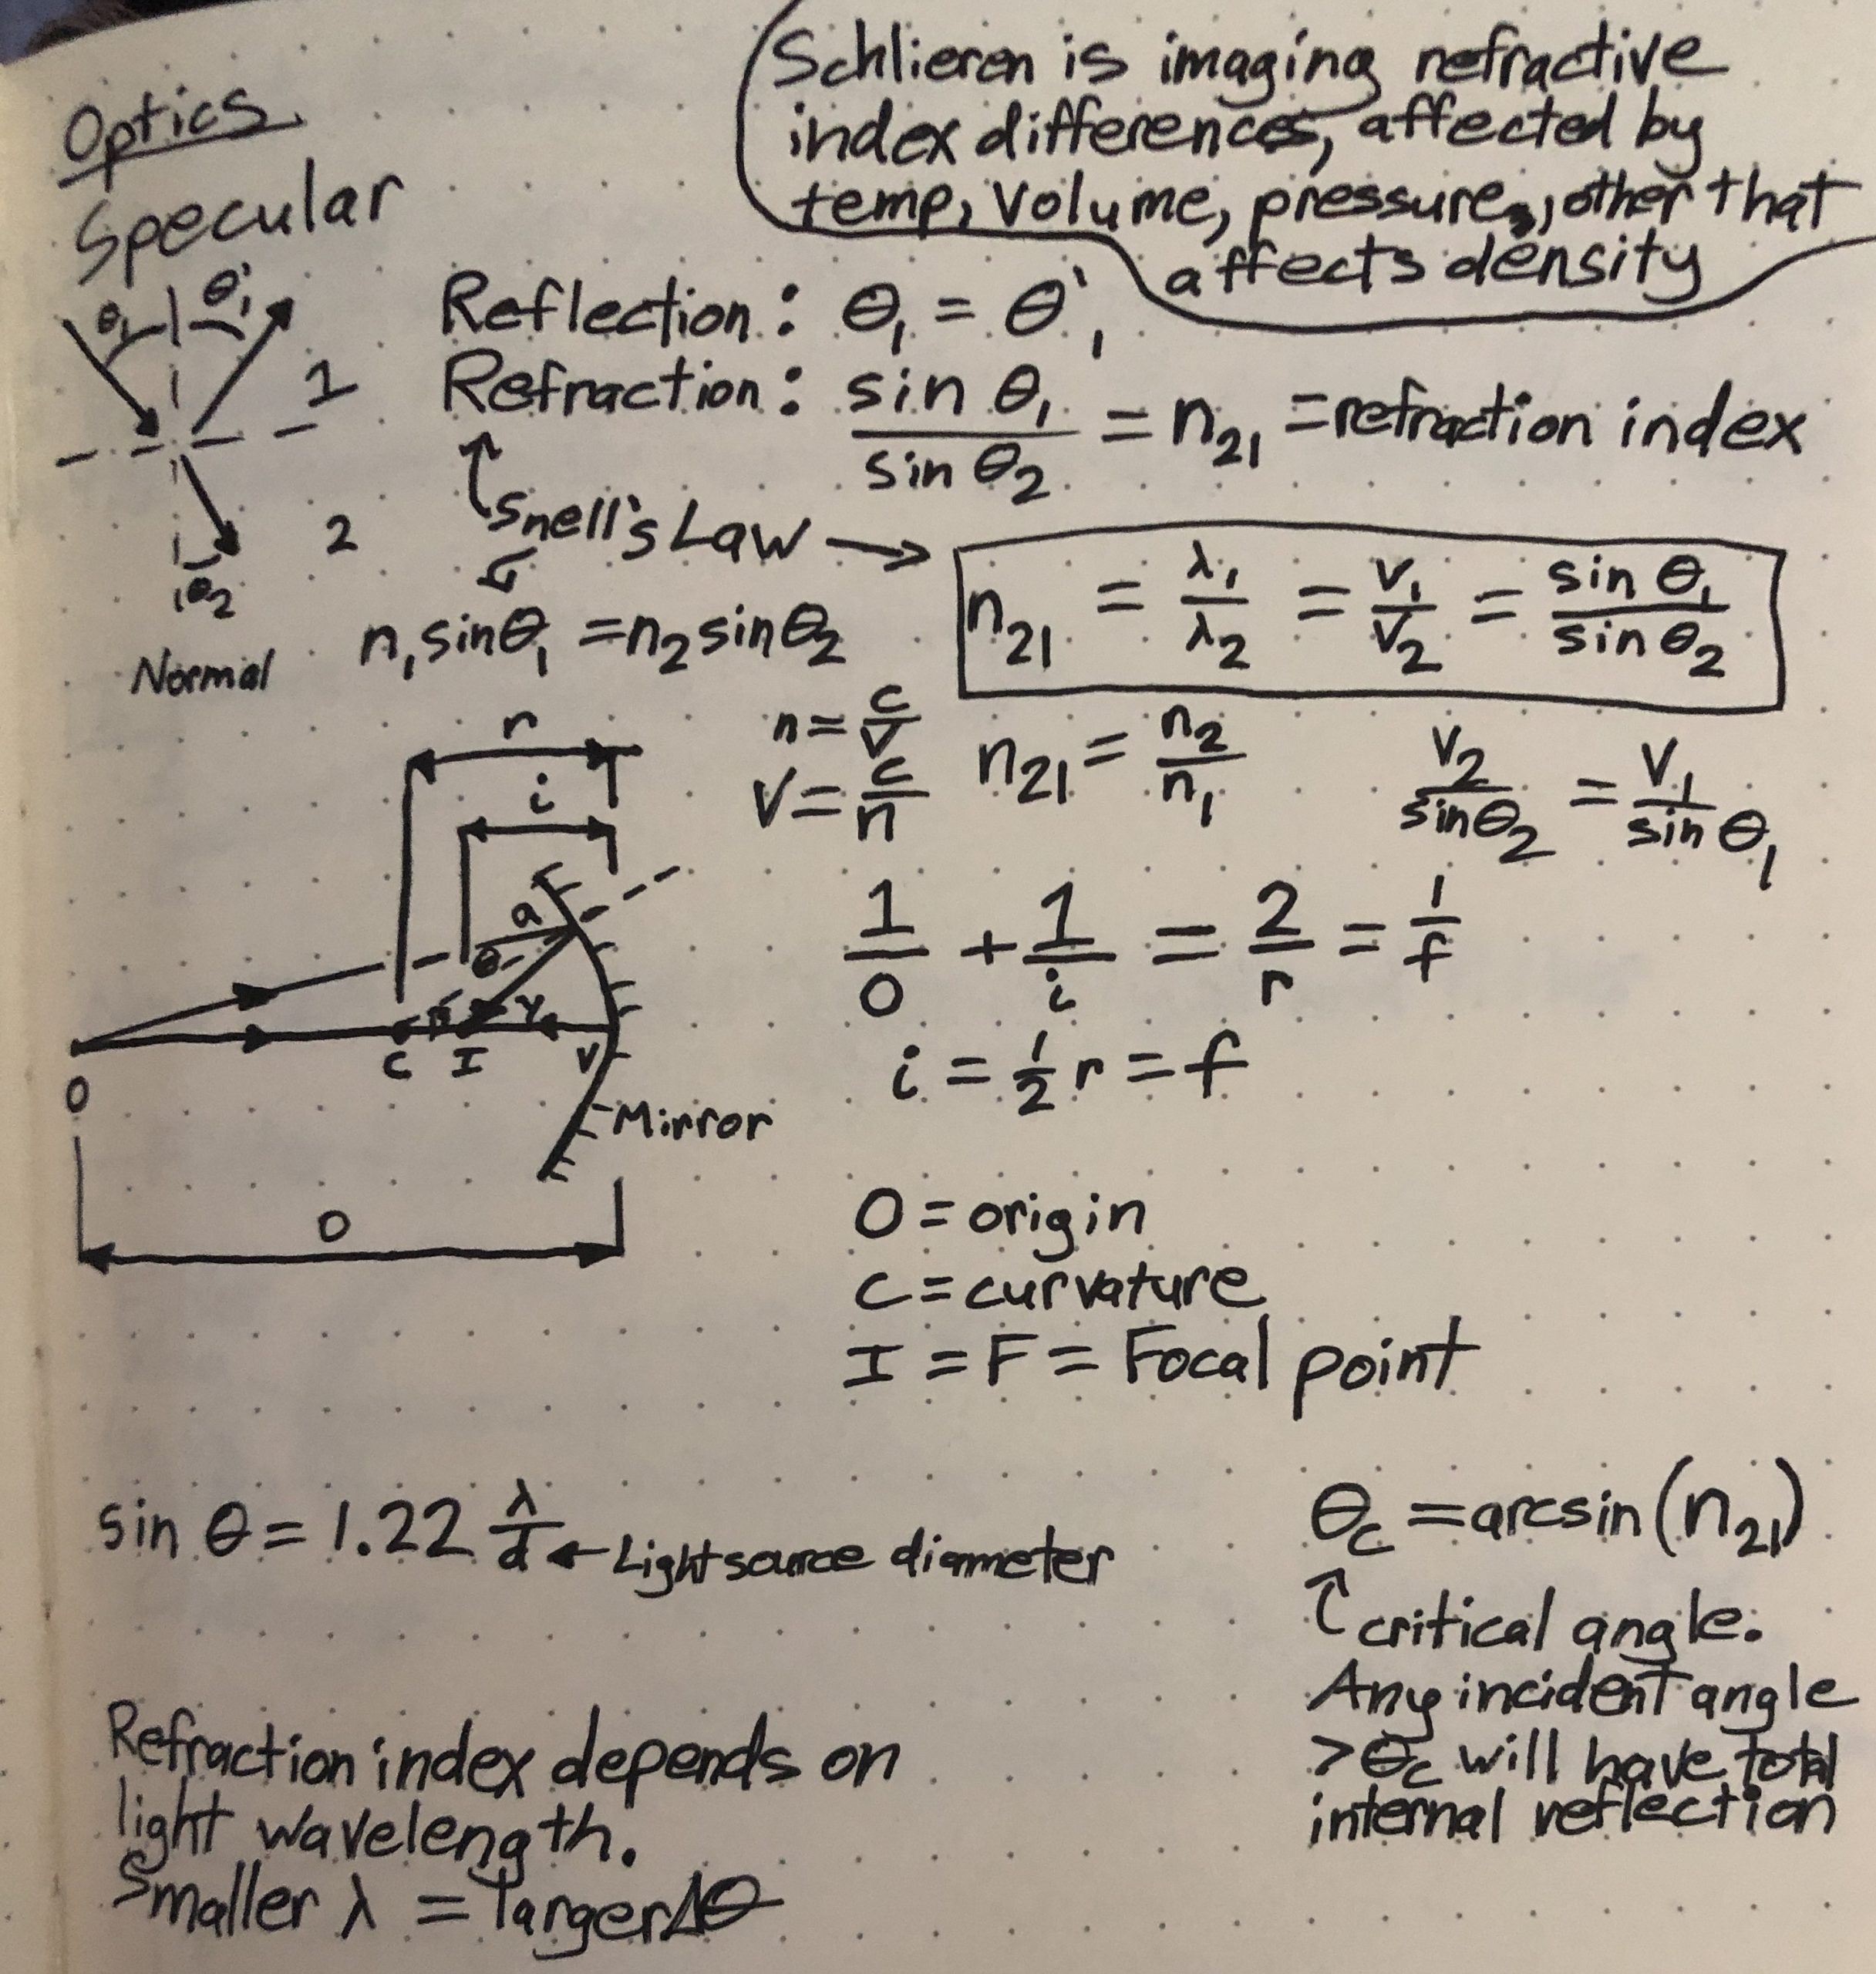 Optics
Specular
Schlieren is imaging refractive
index differences, affected by
temp, volume, pressure, other that
affects density
θ₁ θ'₁
1
2
θ₂
Normal
Reflection: θ₁ = θ'₁
Refraction: sin θ₁ / sin θ₂ = n₂₁ = refraction index
Snell's Law →
n₁ sinθ₁ = n₂ sinθ₂
n₂₁ = λ₁/λ₂ = v₁/v₂ = sin θ₁ / sin θ₂
n = c/v
v = c/n
n₂₁ = n₂/n₁
v₂/sinθ₂ = v₁/sin θ₁
r
i
a
θ
β γ
O C I V
Mirror
o
1/o + 1/i = 2/r = 1/f
i = ½ r = f
O = origin
C = curvature
I = F = Focal point
sin θ = 1.22 λ/d ← Light source diameter
θc = arcsin(n₂₁)
critical angle.
Any incident angle
> θc will have total
internal reflection
Refraction index depends on
light wavelength.
Smaller λ = larger Δθ